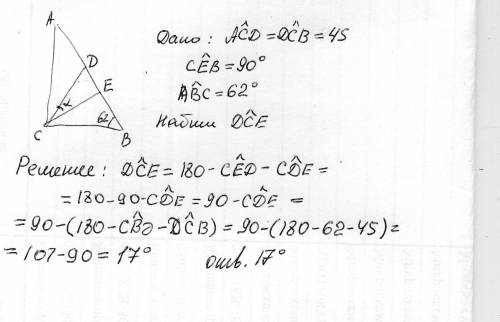 A
D
E
C
α
62
B
Дано: AĈD = DĈB = 45
CÊB = 90°
AB̂C = 62°
Найти DĈE
Решение: DĈE = 180 - CÊD - CD̂E =
= 180 - 90 - CD̂E = 90 - CD̂E =
= 90 - (180 - CB̂D - DĈB) = 90 - (180 - 62 - 45) =
= 107 - 90 = 17° отв. 17°